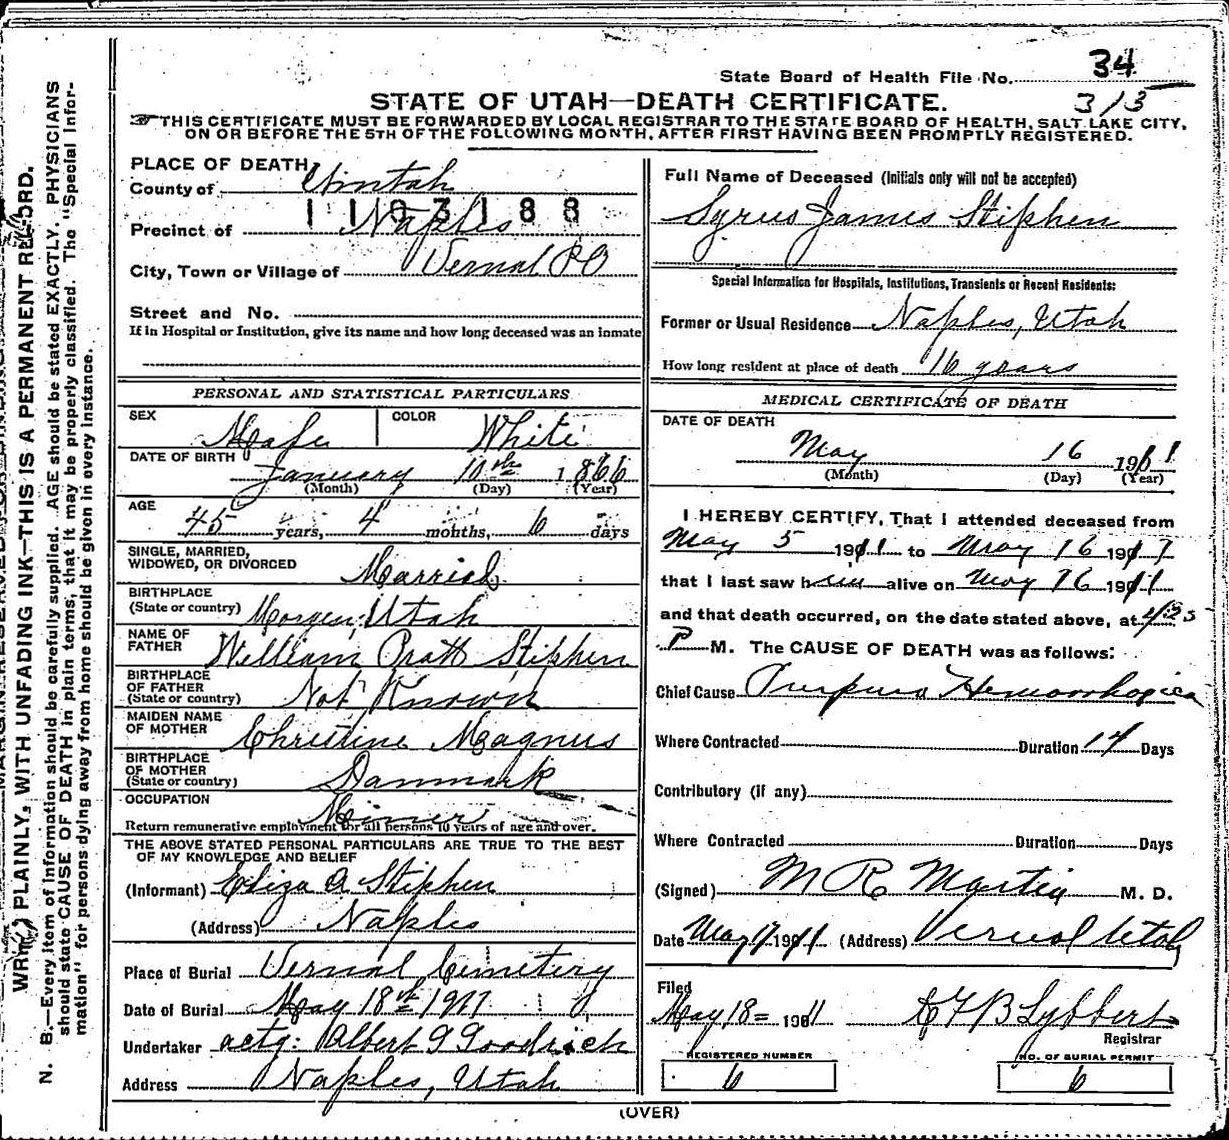 State Board of Health File No. 34
STATE OF UTAH—DEATH CERTIFICATE. 313
THIS CERTIFICATE MUST BE FORWARDED BY LOCAL REGISTRAR TO THE STATE BOARD OF HEALTH, SALT LAKE CITY,
ON OR BEFORE THE 5TH OF THE FOLLOWING MONTH, AFTER FIRST HAVING BEEN PROMPTLY REGISTERED.
WRITE PLAINLY, WITH UNFADING INK—THIS IS A PERMANENT RECORD.
N. B.—Every item of Information should be carefully supplied. AGE should be stated EXACTLY. PHYSICIANS
should state CAUSE OF DEATH in plain terms, that it may be properly classified. The "Special Infor-
mation" for persons dying away from home should be given in every instance.
PLACE OF DEATH,
County of Uintah
1103188
Precinct of Naples
City, Town or Village of Vernal PO
Street and No.
If in Hospital or Institution, give its name and how long deceased was an inmate
PERSONAL AND STATISTICAL PARTICULARS
SEX Male COLOR White
DATE OF BIRTH January 10th 1866
(Month) (Day) (Year)
AGE 45 years, 4 months, 6 days
SINGLE, MARRIED,
WIDOWED, OR DIVORCED Married
BIRTHPLACE
(State or country) Morgen, Utah
NAME OF
FATHER William Pratt Stiphen
BIRTHPLACE
OF FATHER
(State or country) Not Known
MAIDEN NAME
OF MOTHER Christine Magnus
BIRTHPLACE
OF MOTHER
(State or country) Danmark
OCCUPATION Miner
Return remunerative employment for all persons 10 years of age and over.
THE ABOVE STATED PERSONAL PARTICULARS ARE TRUE TO THE BEST
OF MY KNOWLEDGE AND BELIEF
(Informant) Eliza A Stiphen
(Address) Naples
Place of Burial Vernal Cemetery
Date of Burial May 18th 1911
Undertaker actg: Albert G Goodrich
Address Naples, Utah
Full Name of Deceased (Initials only will not be accepted)
Syrus James Stiphen
Special Information for Hospitals, Institutions, Transients or Recent Residents:
Former or Usual Residence Naples, Utah
How long resident at place of death 16 years
MEDICAL CERTIFICATE OF DEATH
DATE OF DEATH
May 16 1911
(Month) (Day) (Year)
I HEREBY CERTIFY, That I attended deceased from
May 5 1911 to May 16 1911
that I last saw him alive on May 16 1911
and that death occurred, on the date stated above, at 4:25
P M. The CAUSE OF DEATH was as follows:
Chief Cause Purpura Hemorrhagica
Where Contracted Duration 14 Days
Contributory (if any)
Where Contracted Duration Days
(Signed) M R Martin M. D.
Date May 17 1911 (Address) Vernal Utah
Filed
May 18= 1911 Lybbert
Registrar
REGISTERED NUMBER NO. OF BURIAL PERMIT
6 6
(OVER)